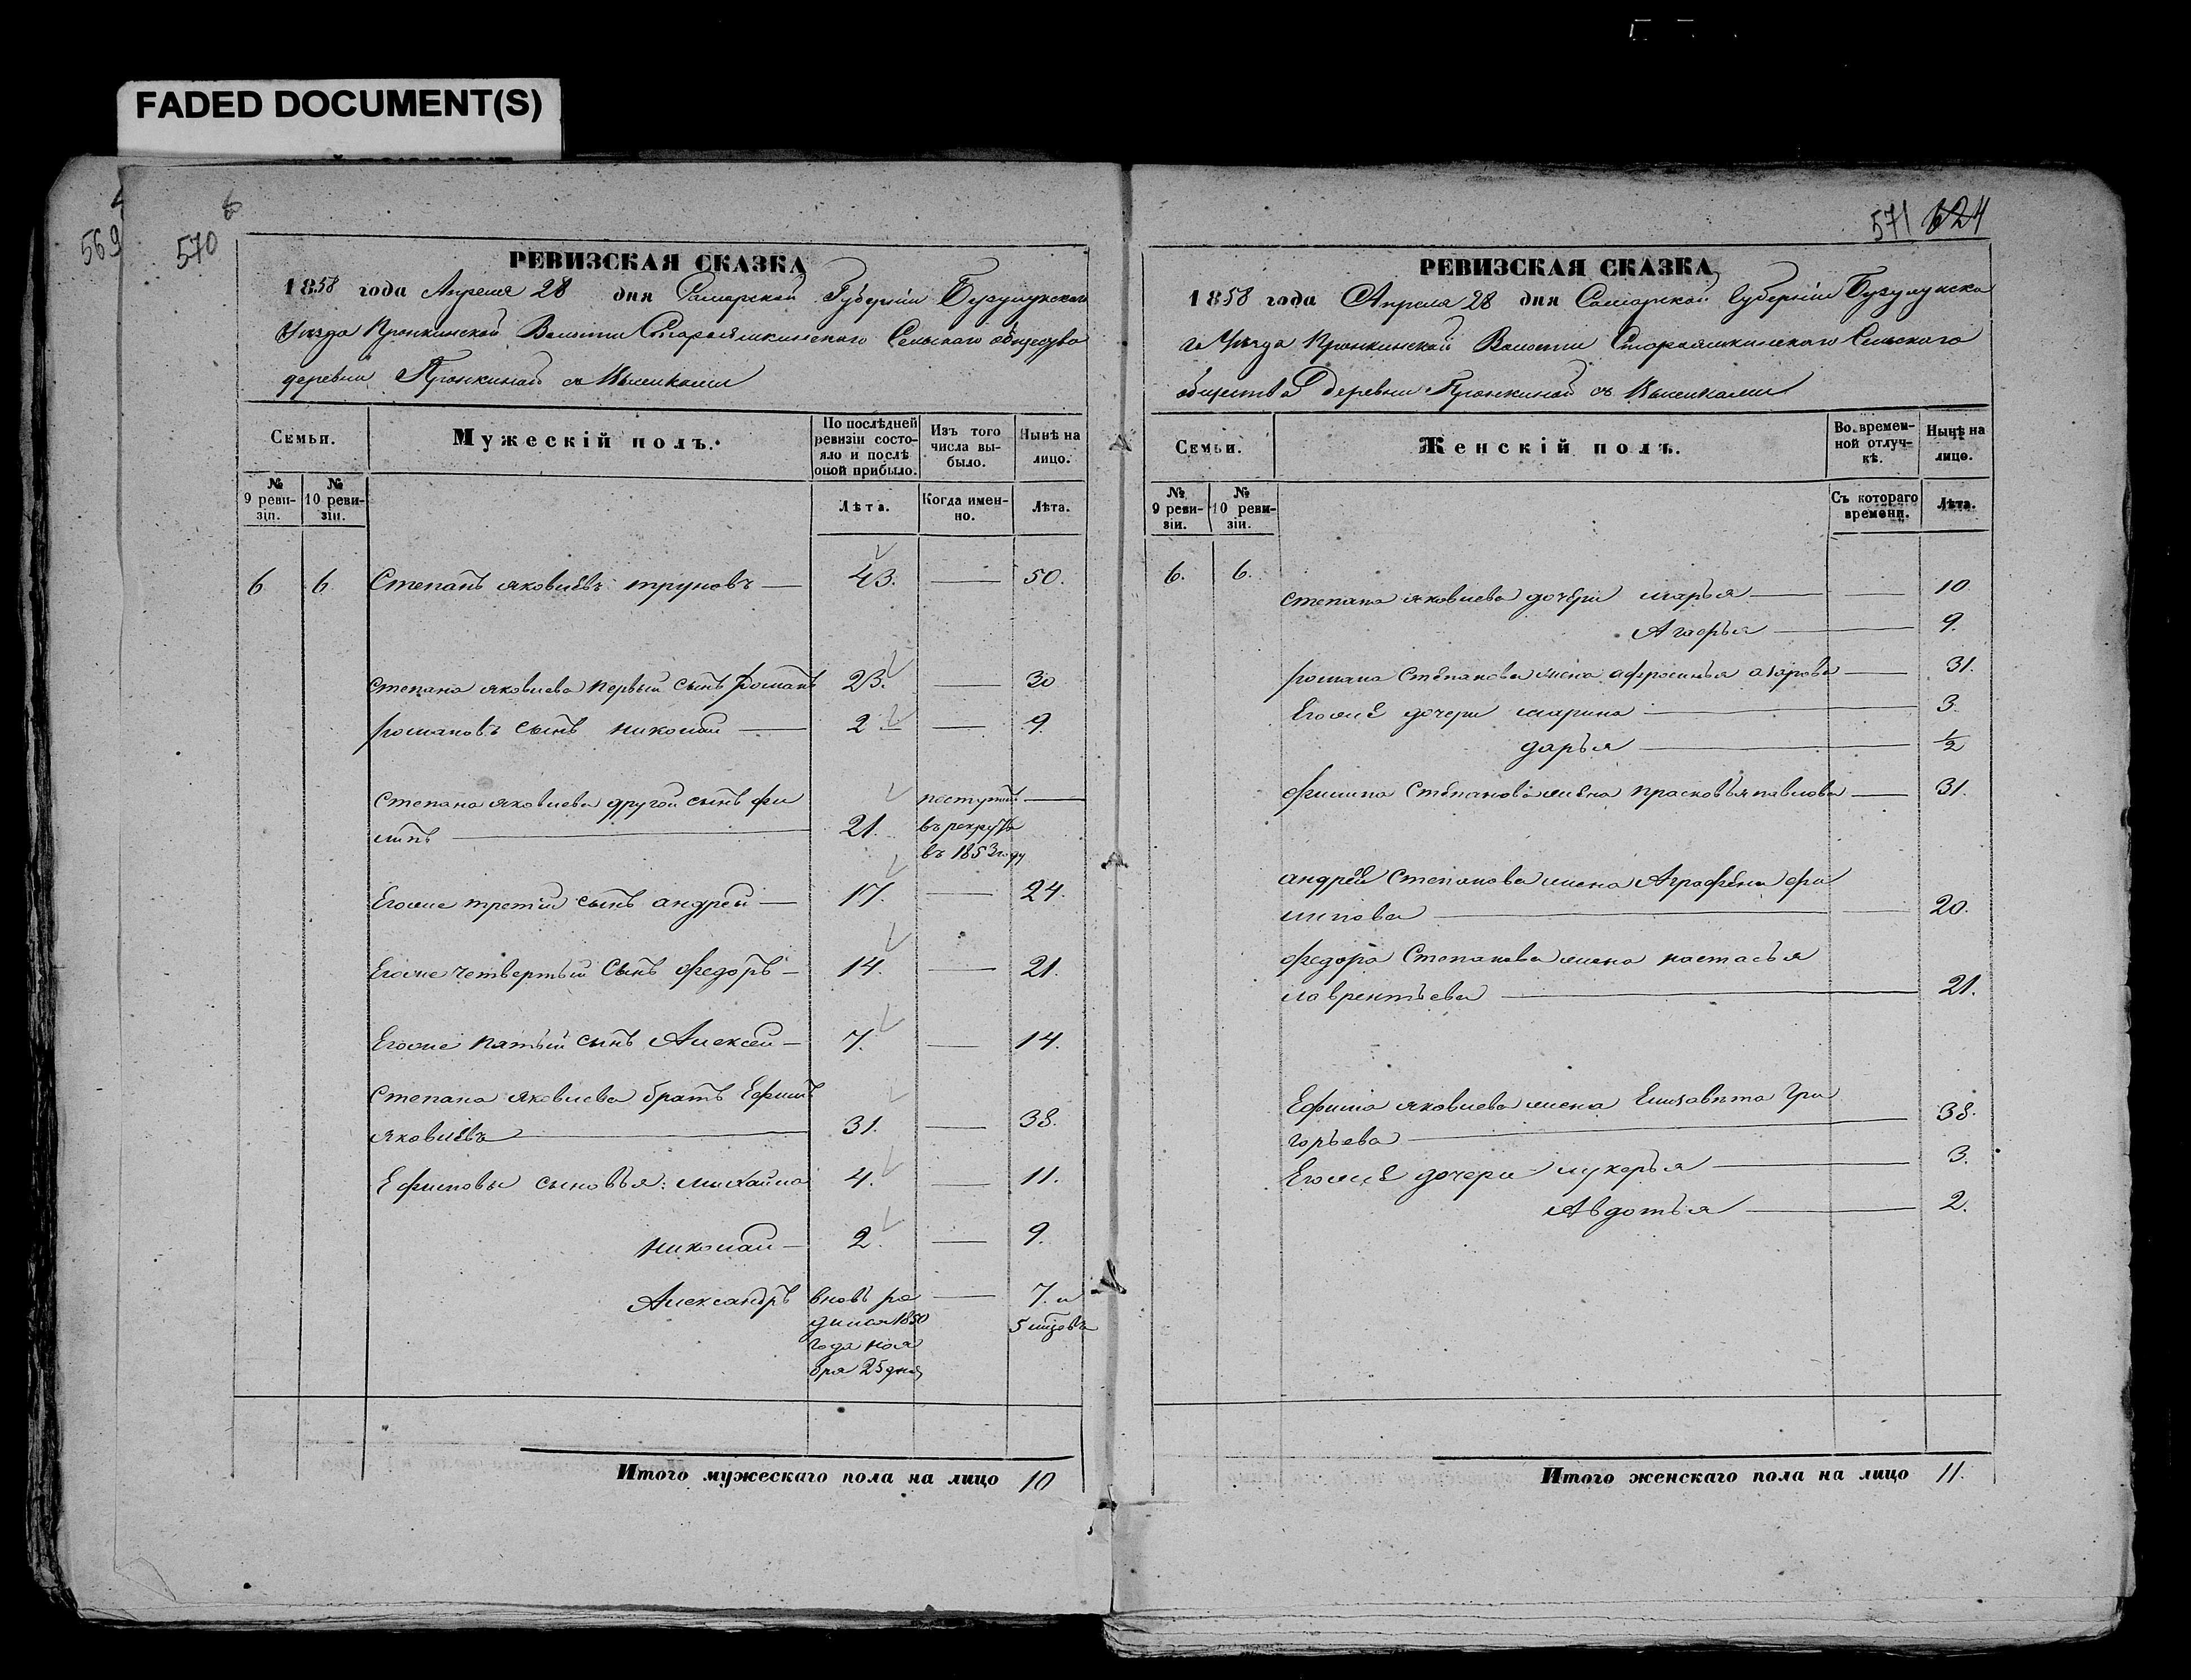 FADED DOCUMENT(S)
569
6
570
РЕВИЗСКАЯ СКАЗКА
1858 года Апреля 28 дня Самарской Губерніи Бузулукскаго
Уѣзда Пронкинской Волости Староашкинскаго Сельскаго общества
деревни Пронкиной съ Выселками
Семьи.
Мужескій полъ.
По послѣдней ревизіи состояло и послѣ оной прибыло.
Изъ того числа выбыло.
Нынѣ на лицо.
№ 9 ревизіи.
№ 10 ревизіи.
Лѣта.
Когда именно.
Лѣта.
6 6 Степанъ яковлѣвъ труновъ — 43. — 50.
степана яковлева первый сынъ романъ 23. — 30
романовъ сынъ николай — 2 — 9
степана яковлева другой сынъ фи
липъ — 21. поступил
въ рекруты
въ 1853 году
Егоже третій сынъ андрей — 17. — 24.
Егоже четвертый Сынъ федоръ — 14. — 21.
Егоже пятый сынъ Алексей — 7. — 14.
Степана яковлева братъ Ефимъ
яковлѣвъ — 31. — 38.
Ефимовы сыновья: михайла 4. — 11.
николай — 2. — 9.
Александръ вновь ро — 7. и
дился 1850 5 мцовъ
года ноя
бря 25 дня
Итого мужескаго пола на лицо 10
571 624
РЕВИЗСКАЯ СКАЗКА
1858 года Апреля 28 дня Самарской Губерніи Бузулукска
го Уѣзда Пронкинской Волости Староашкинскаго Сельскаго
общества деревни Пронкиной съ Выселками
Семьи.
Женскій полъ.
Во временной отлучкѣ.
Нынѣ на лицо.
№ 9 ревизіи.
№ 10 ревизіи.
Съ котораго времени.
Лѣта.
6. 6.
степана яковлева дочери марья — 10
Агафья — 9.
романа Степанова жена афросинья азарова — 31.
Егоже дочери марина — 3.
дарья — ½
филипа Степанова жена прасковья павлова — 31.
андрея Степанова жена Аграфена фи
липова — 20.
федора Степанова жена настасья
лаврентьева — 21.
Ефима яковлева жена Елизавѣта Гри
горьева — 38.
Егоже дочери лукерья — 3.
Авдотья — 2.
Итого женскаго пола на лицо 11.